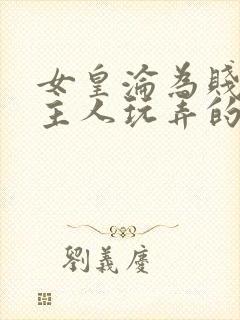 女皇淪為賤
主人玩弄的
劉義慶